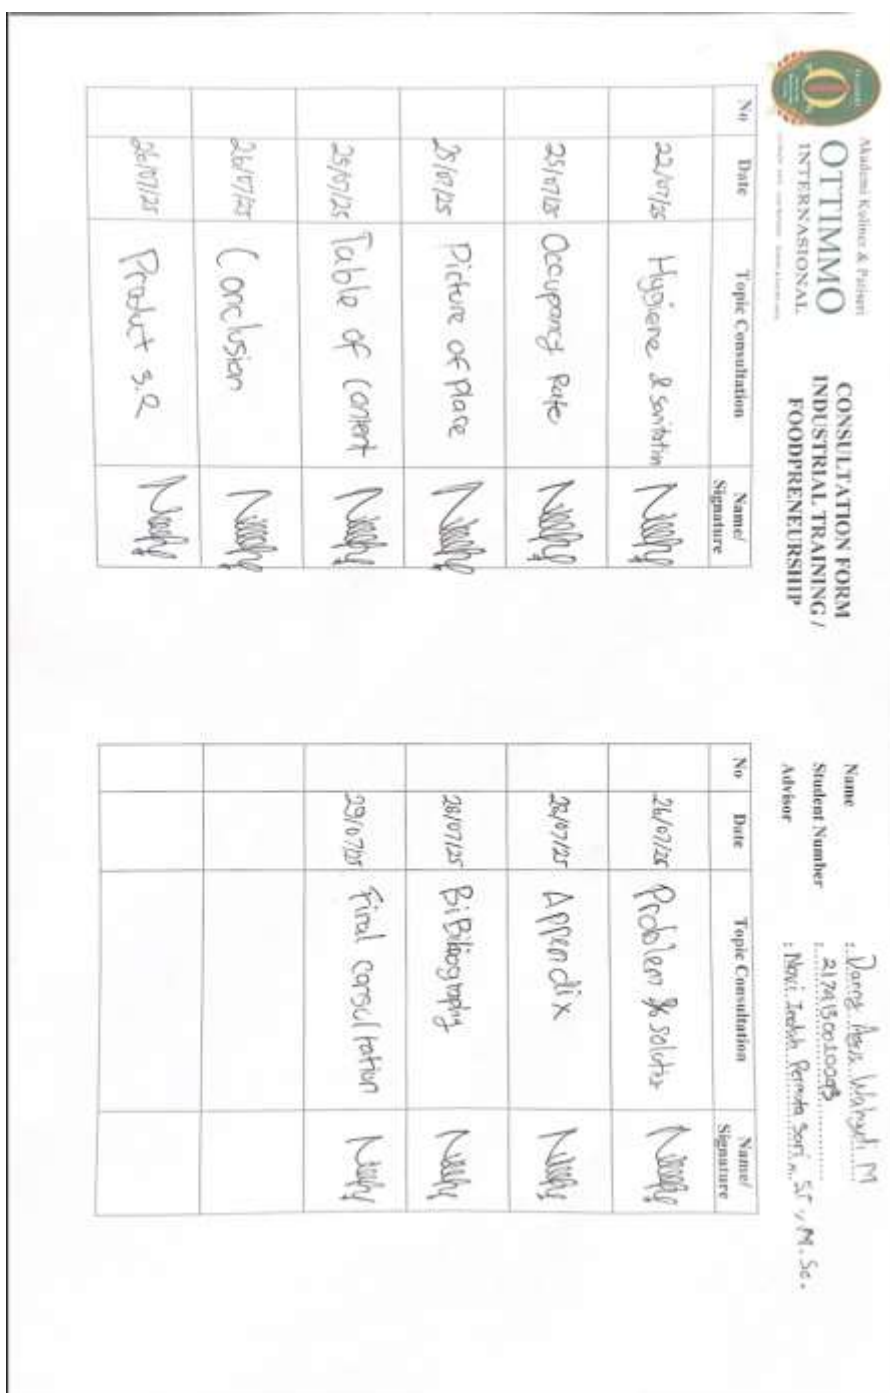 Akademi Kuliner & Patiseri
OTTIMMO
INTERNASIONAL
CONSULTATION FORM
INDUSTRIAL TRAINING /
FOODPRENEURSHIP
Name : Danny Agus Wahyudi M
Student Number :
Advisor : Novi Indah Permata Sari, ST., M.Sc.
No Date Topic Consultation Name/ Signature
22/07/25 Hygiene & sanitation
25/07/25 Occupancy Rate
25/07/25 Picture of place
25/07/25 Table of content
26/07/25 Conclusion
26/07/25 Product 3.2
No Date Topic Consultation Name/ Signature
26/07/25 Problem & solution
28/07/25 Appendix
28/07/25 BiBiliography
29/07/25 Final consultation